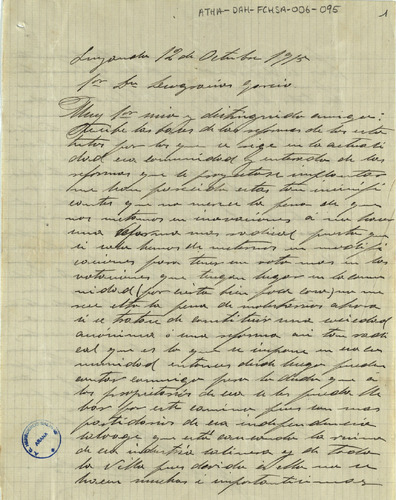 ATHA-DAH-FCHSA-006-095
1
12 de Octubre 1915
Sr Dn Deogracias Garcia
Muy Sr mio y distinguido amigo:
Recibi las bases de la reforma de los esta
tutos por los que se rige en la actuali
dad esa comunidad y enterado de las
reformas que se proyectase implantar
me han parecido estas tan insignifi
cantes que no merece la pena de que
nos metamos en inovaciones á no hacer
una reforma mas radical puesto que
si solo hemos de meternos en modifi
caciones para tener un voto mas en las
votaciones que tengan lugar en la comu
nidad (por cierto bien poca cosa) no me
rece esto la pena de molestarnos ahora
si se tratase de constituir una sociedad
anónima ó una reforma asi tan radi
cal que es lo que se impone en esa co
munidad entonces desde luego pueden
contar conmigo pero lo dudo que a
los propietarios de esa se les pueda lle
bar por este camino pues son mas
partidarios de esa independencia
salvage que está causando la ruina
de esa industria salinera y de toda
la Villa pues dorida
hacen muchas é importantisimas